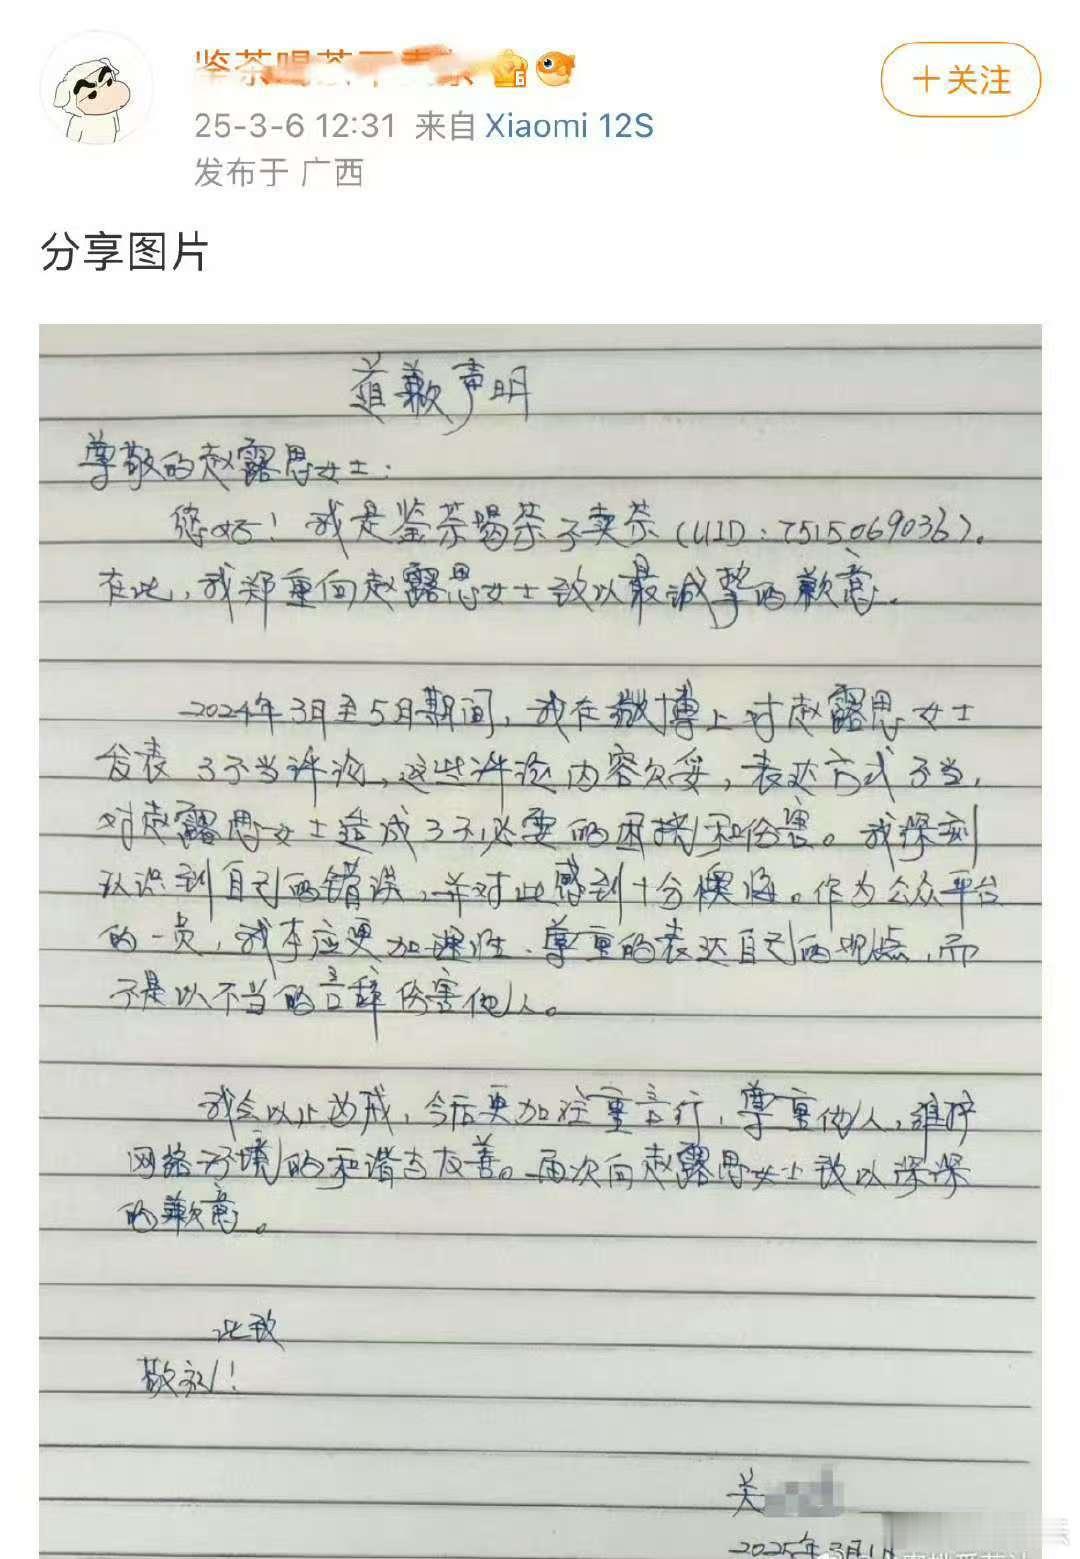 鉴茶喝茶不卖茶
+关注
25-3-6 12:31 来自 Xiaomi 12S
发布于 广西
分享图片
道歉声明
尊敬的赵露思女士:
您好!我是鉴茶喝茶不卖茶(UID:7515069036)。
在此,我郑重向赵露思女士致以最诚挚的歉意。
2024年3月至5月期间,我在微博上对赵露思女士
发表了不当评论,这些评论内容欠妥,表达方式不当,
对赵露思女士造成了不必要的困扰和伤害。我深刻
认识到自己的错误,并对此感到十分懊悔。作为公众平台
的一员,我本应更加理性、尊重的表达自己的观点,而
不是以不当的言辞伤害他人。
我会以此为戒,今后更加注重言行,尊重他人,维护
网络环境的和谐与友善。再次向赵露思女士致以深深
的歉意。
此致
敬礼!
关
2025年3月1日